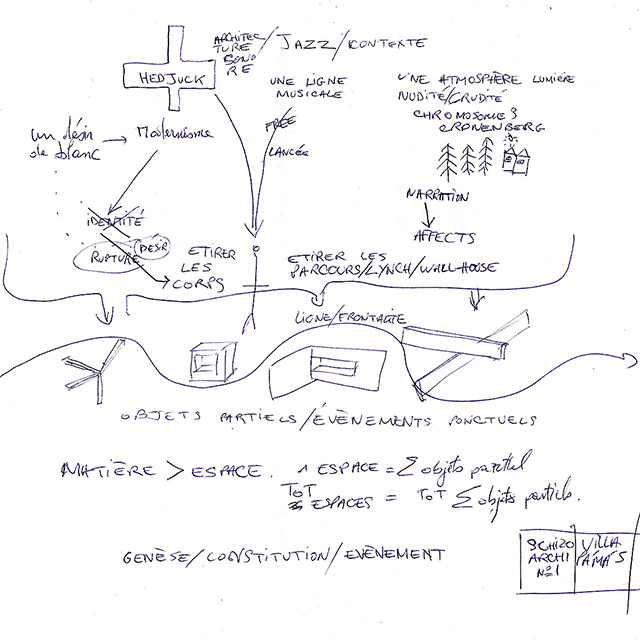 ARCHITEC
TURE
SONO
RE
/JAZZ/CONTEXTE
HEDJUCK
UNE LIGNE
MUSICALE
FREE
LANCÉE
UNE ATMOSPHÈRE LUMIÈRE
NUDITÉ/CRUDITÉ
CHROMOSOME 3
CRONENBERG
un désir
de blanc
Modernisme
NARRATION
AFFECTS
IDENTITÉ
RUPTURE
DÉSIR
ETIRER
LES
CORPS
ETIRER LES
PARCOURS/LYNCH/WALL-HOUSE
LIGNE/FRONTALITE
OBJETS PARTIELS/ÉVÈNEMENTS PONCTUELS
MATIÈRE > ESPACE. 1 ESPACE = Σ objets parttiel
TOT
ESPACES = TOT Σ objets partiels.
GENÈSE/CONSTITUTION/EVÈNEMENT
SCHIZO
ARCHI
N°1
VILLA
PÁMÁ'S